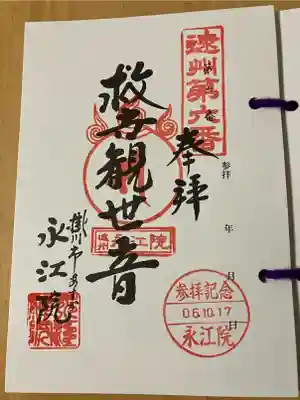 遠州第六番
奉拝
参拝
年
月
日
救世観世音
遠州
永江院
参拝記念
06.10.17
永江院
掛川市
永江院